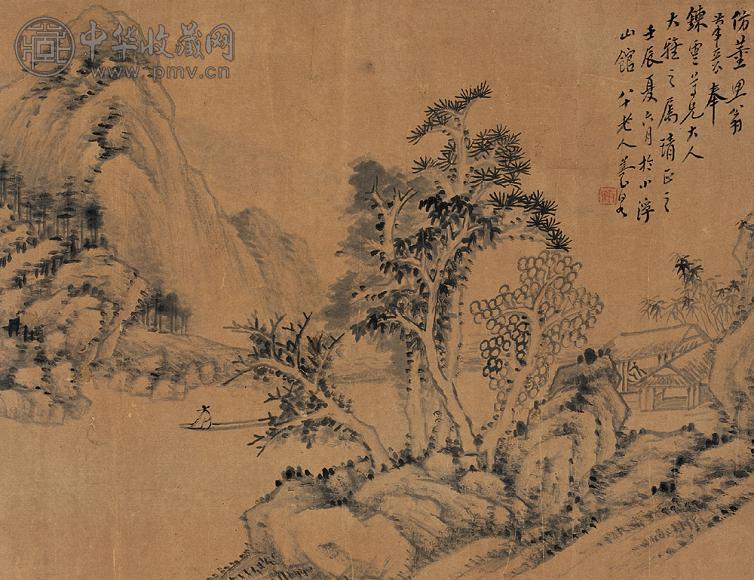 中华收藏网
www.pmv.cn
仿董思翁
筆意奉
鍊雪尊兄大人
大雅之属請正之
壬辰夏六月於小滹
山館 八十老人